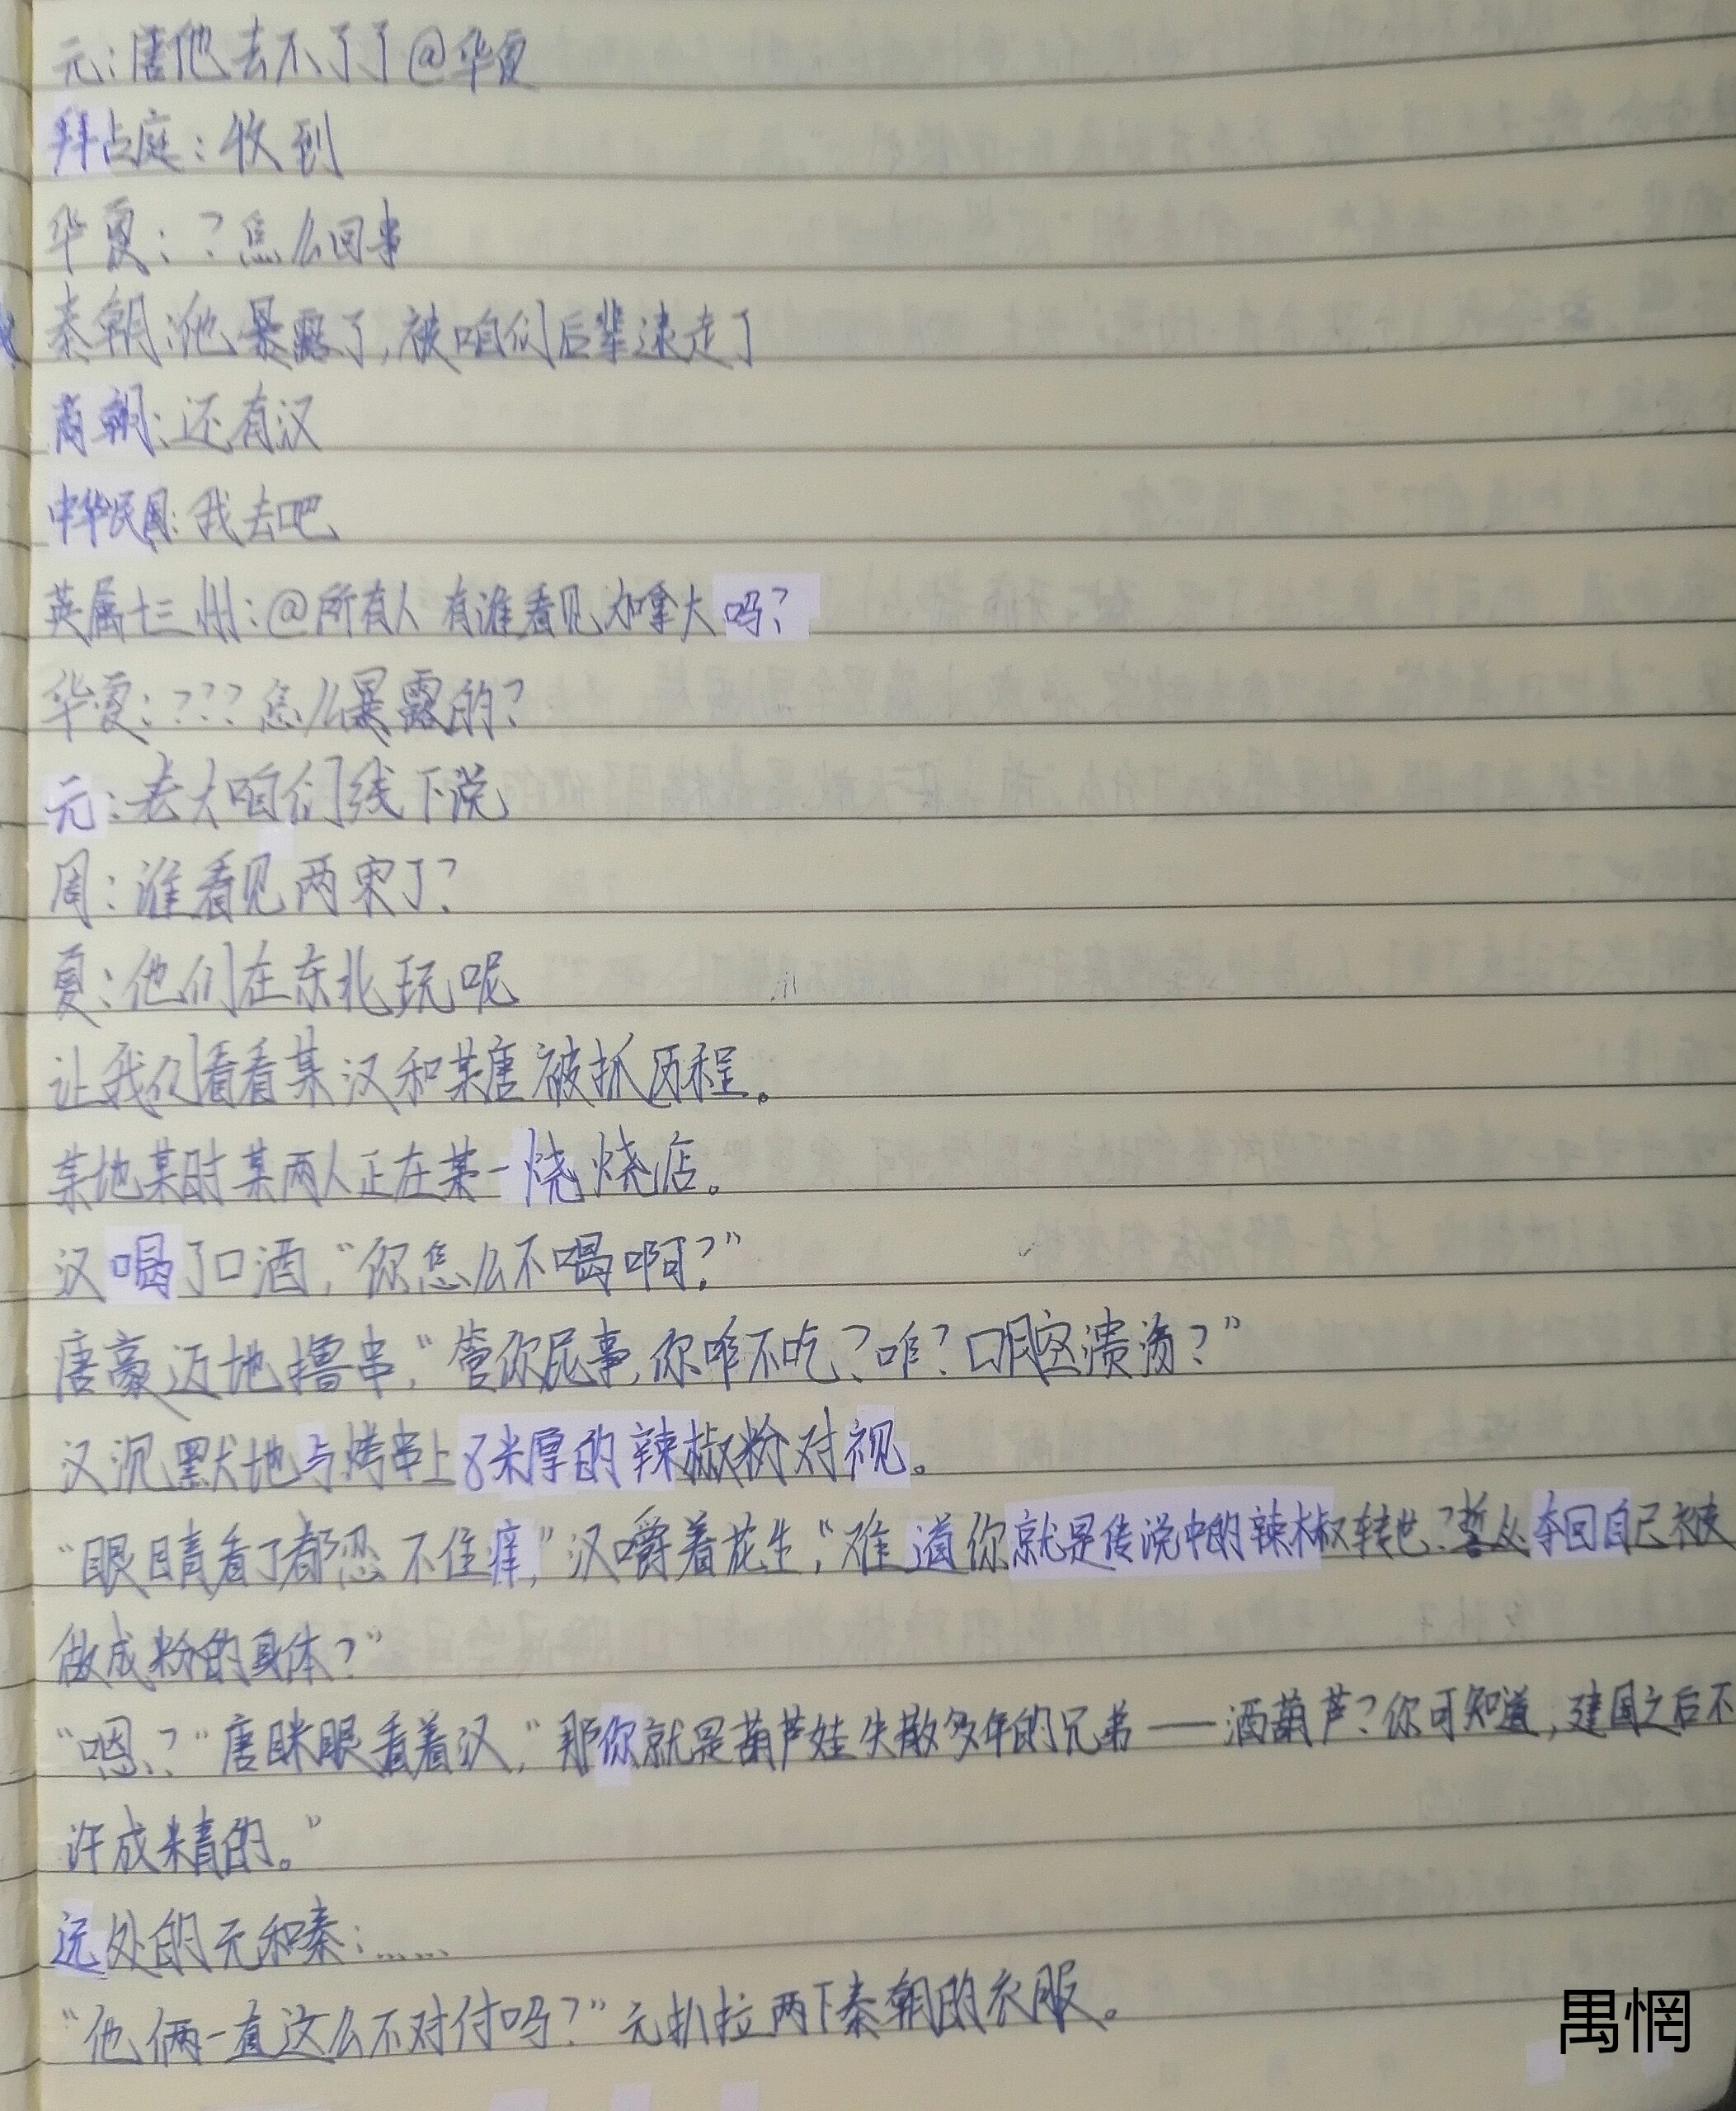 元：唐他去不了了@华夏
拜占庭：收到
华夏：？怎么回事
秦朝：他暴露了，被咱们后辈逮走了
商朝：还有汉
中华民国：我去吧
英属十三州：@所有人 有谁看见加拿大吗？
华夏：？？？怎么暴露的？
元：老大咱们线下说
周：谁看见两宋了？
夏：他们在东北玩呢
让我们看看某汉和某唐被抓历程。
某地某时某两人正在某一烧烧店。
汉喝了口酒，“你怎么不喝啊？”
唐豪迈地撸串，“管你屁事，你咋不吃？咋？口腔溃疡？”
汉沉默地与烤串上8米厚的辣椒粉对视。
“眼睛看了都忍不住痒，”汉嚼着花生，“难道你就是传说中的辣椒转世？誓必夺回自己被
做成粉的身体？”
“嗯？”唐眯眼看着汉，“那你就是葫芦娃失散多年的兄弟——酒葫芦？你可知道，建国之后不
许成精的。”
远处的元和秦：……
“他俩一直这么不对付吗？”元扒拉两下秦朝的衣服。
禺惘